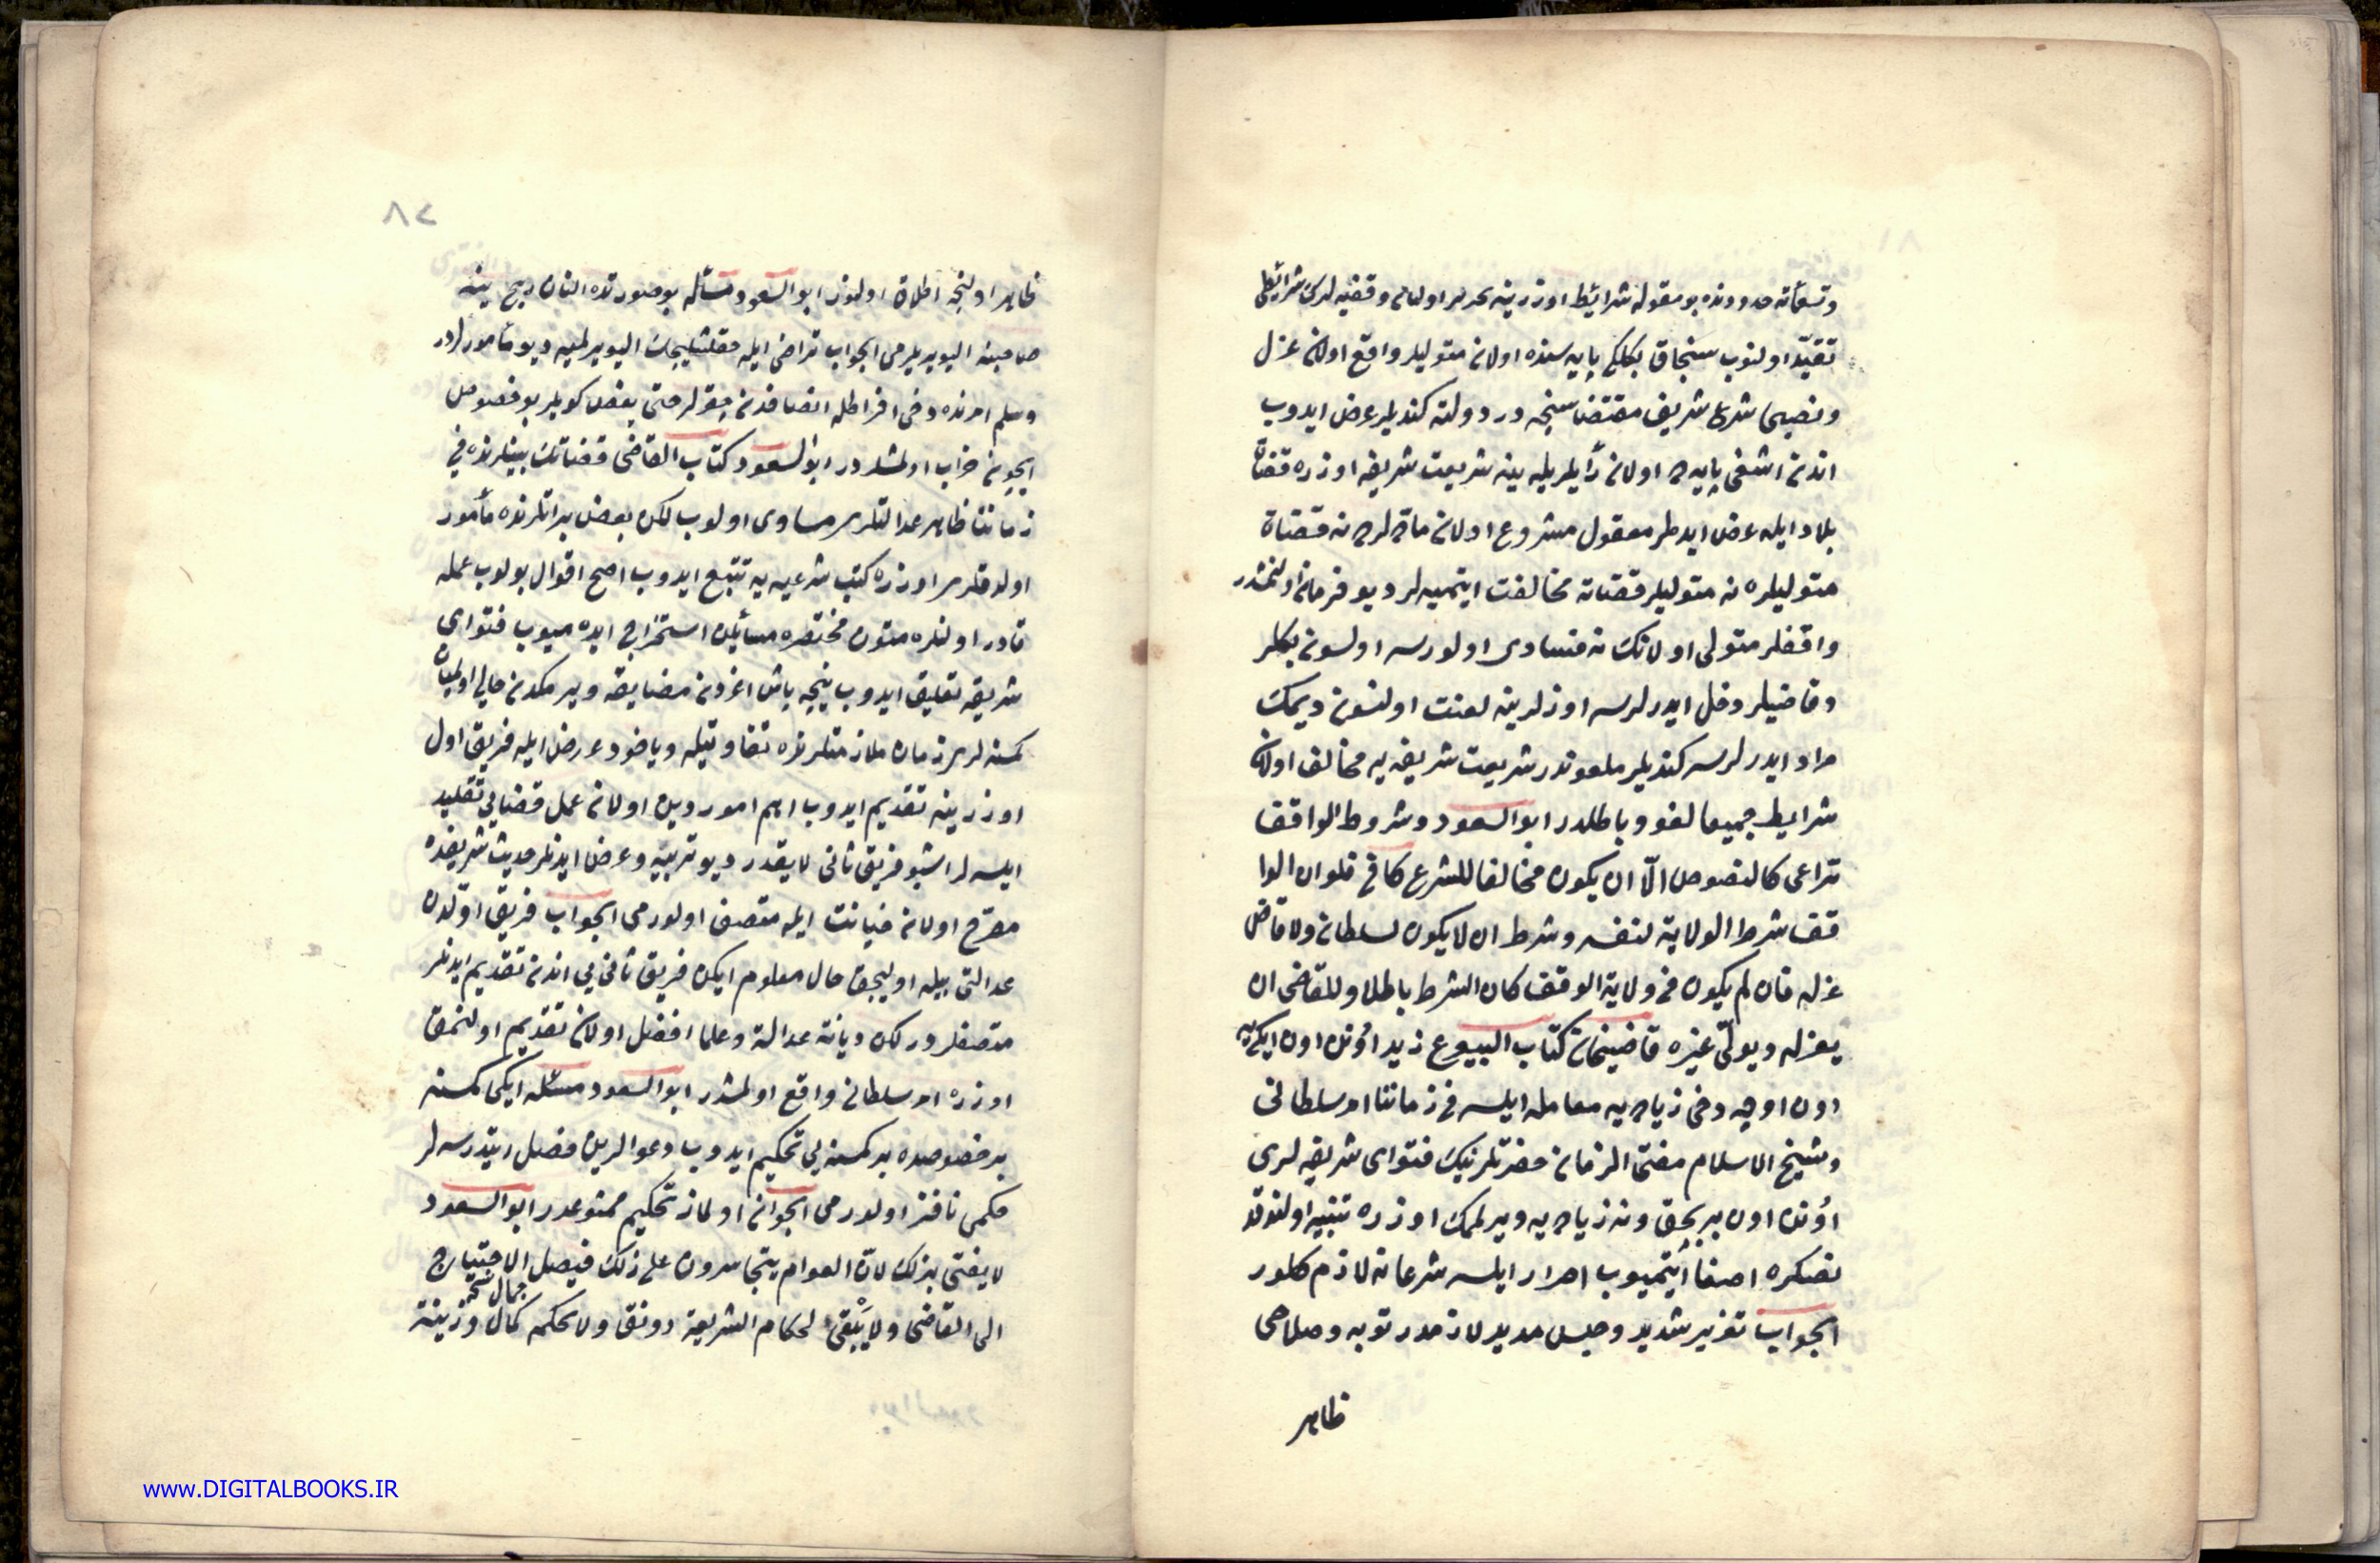 وتسعمأته حدودنده بو مقوله شرائط اوزرینه تحریر اولنان وقفیه لرک شرائطی
تقیّد اولنوب سنجاق بکلکی پایه سنده اولان متولیلر واقع اولان عزل
و نصبی شرع شریف مقتضاسنجه در دولته کندیلر عرض ایدوب
اندن اشغی پایه ده اولان ینه شریعت شریفه اوزره قضاة
بلاد ایله عرض ایدهلر معقول مشروع اولان ماده لرده نه قضاة
متولیلره نه متولیلر قضاته مخالفت ایتمیه لر دیو فرمان اولنمشدر
واقفلر متولی اولانک نه فسادی اولورسه اولسون بکلر
وقاضیلر دخل ایدرلرسه اوزلرینه لعنت اولنسون دیمک
مراد ایدرلرسه کندیلر ملعوندر شریعت شریفه یه مخالف اولان
شرایط جمیعا لغو و باطلدر ابو السعود و شروط الواقف
تراعی کالنصوص الّا ان یکون مخالفا للشرع کما فی فلو ان الوا
قف شرط الولایة لنفسه و شرط ان لا یکون لسلطان ولا قاض
عزله فان لم یکون فی ولایة الوقف کان الشرط باطلا و للقاضی ان
یعزله و یولّی غیره قاضیخان کتاب البیوع زید اونی اون ایکی یه
اون اوچه دخی زیاده یه معامله ایلسه فی زماننا امر سلطانی
و شیخ الاسلام مفتی الزمان حضرتلرینک فتوای شریفه لری
اونی اون بر بچق دن زیاده یه ویرلمک اوزره تنبیه اولندقد
نصکره اصغا ایتمیوب اصرار ایلسه شرعا نه لازم کلور
الجواب تعزیر شدید و حبس مدید لازمدر توبه و صلاحی
ظاهر
٨٢
ظاهر اولنجه اطلاق اولنور ابو السعود مسئله بو صورتده النان ربح ینه
صاحبنه الیویریلرمی الجواب تراضی ایله الیویرلمیه دیو مأمورلردر
و سلم امرنده دخی افراطله انصافدن چقرلر حتی بعض کویلر بو خصوص
ایچون خراب اولمشلردر ابو السعود کتاب القاضی قضاتک بینلرنده فی
زماننا ظاهر عدالتلری مساوی اولوب لکن بعض براتلرنده مأمور
اولدقلری اوزره کتب شرعیه یه تتبع ایدوب اصح اقوال بولوب عمله
قادر اولنلره متون مختصره مسائلن استخراج ایده میوب فتوای
شریفه تعلیق ایدوب نیجه باش اغزدن مضایقه ویرمکدن خالی اولمیان
کمسنه لری زمان ملازمتلرنده تفاوتیله و یاخود عرض ایله فریق اول
اوزرینه تقدیم ایدوب اهم امور دین اولان عمل قضایی تقلید
ایلسه لر اشبو فریق ثانی لایقدر دیو تربیه و عرض ایدنلر حدیث شریفده
مصرح اولان خیانت ایله متصف اولورمی الجواب فریق اولدن
عدالتی بیله اولیجق حال معلوم ایکن فریق ثانی یی اندن تقدیم ایدنلر
متصفلردر لکن دیانة عدالة و علما افضل اولان تقدیم اولنمق
اوزره امر سلطانی واقع اولمشدر ابو السعود مسئله ایکی کمسنه
بر خصوصده بر کمسنه یی تحکیم ایدوب دعوالرین فصل ایتدرسه لر
حکمی نافذ اولورمی الجواب اولماز تحکیم ممنوعدر ابو السعود
لا یفتی بذلک لانّ العوام یتجاسرون علی ذلک فیصل الاحتیاج
الی القاضی ولا یبقی لحکام الشریعة رونق ولا لمحکمه کمال و زینة
جمال نسخه
www.DIGITALBOOKS.IR